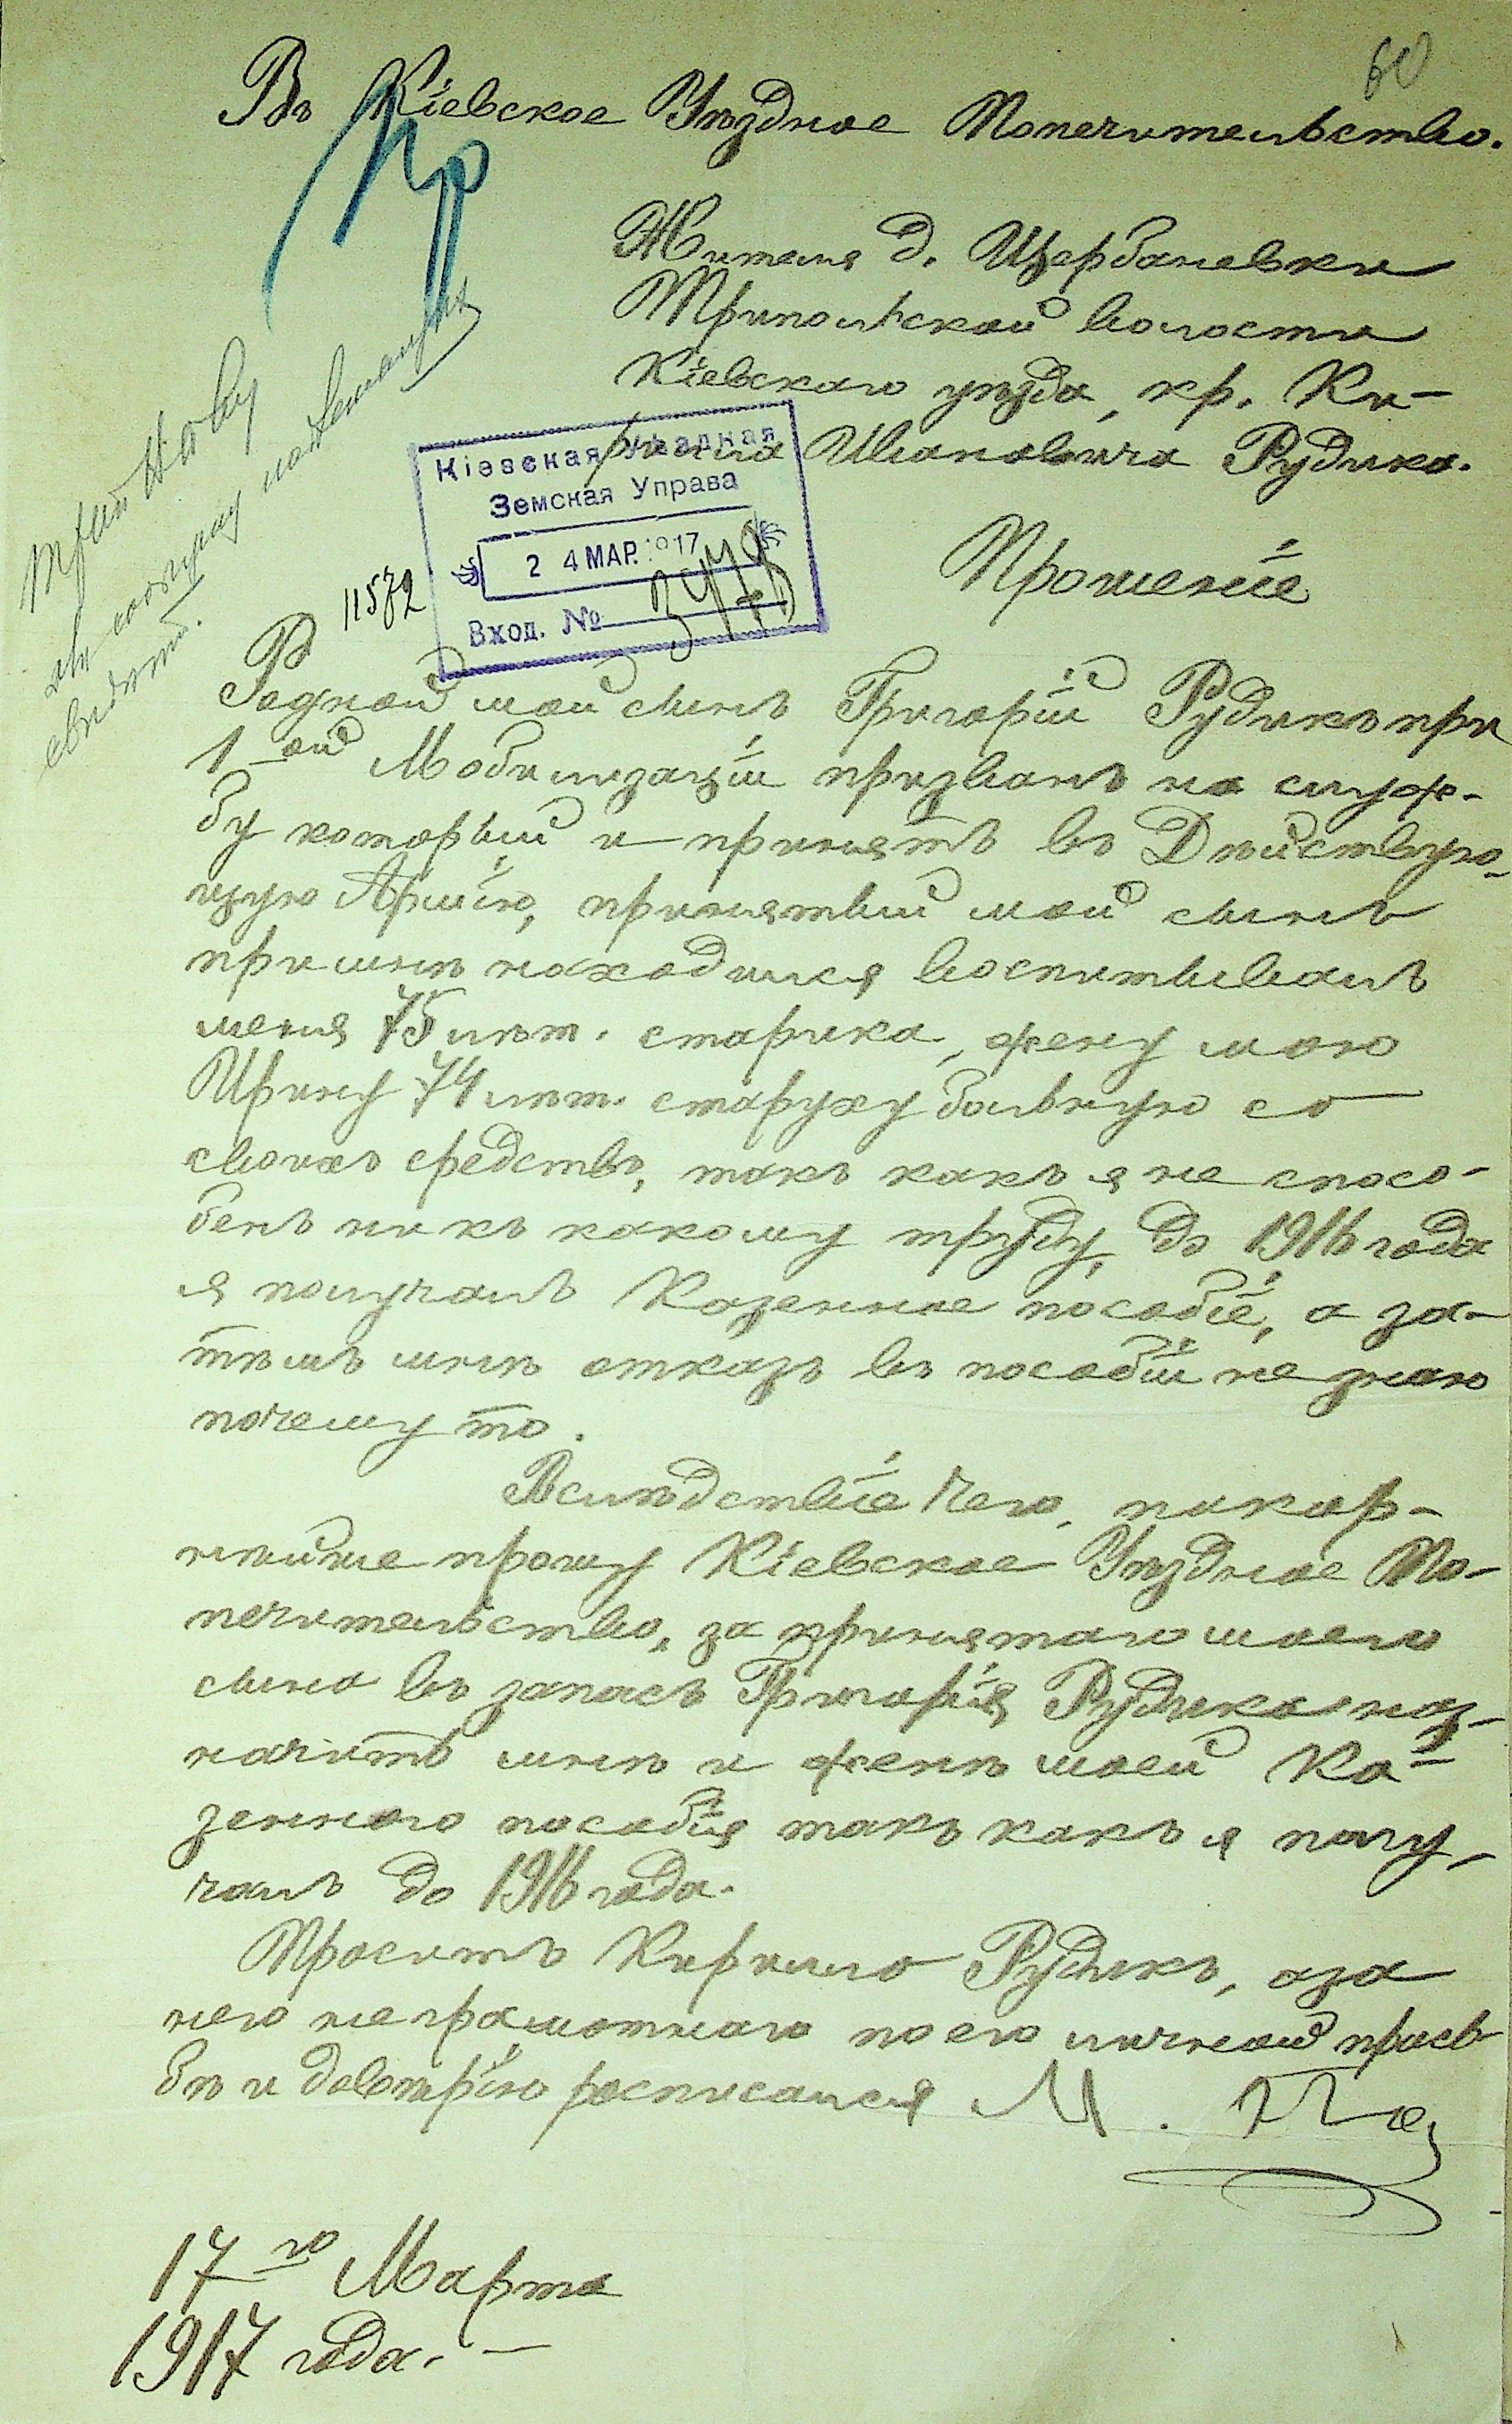 60
Въ Кіевское Уѣздное Попечительство.
Жителя д. Щербаневки
Трипольской волости
Кіевскаго уѣзда, кр. Ки-
рила Ивановича Рудика.
Кіевская Уѣздная
Земская Управа
2 4 МАР. 1917
Вход. №
11572
Прошеніе
Родной мой сынъ Григорій Рудикъ при
1-ой Мобилизаціи призванъ на служ-
бу который и принятъ въ Дѣйствую-
щую Армію, принятый мой сынъ
при мнѣ находился воспитывалъ
меня 75 лѣт. старика, жену мою
Ирину 74 лѣт. старуху больную со
своихъ средствъ, такъ какъ я не спосо-
бенъ ни къ какому труду, до 1916 года
я получалъ Казенное пособіе, а за-
тѣмъ мнѣ отказъ въ пособіи не знаю
почему то.
Вслѣдствіе чего, покор-
нѣйше прошу Кіевское Уѣздное По-
печительство, за принятаго моего
сына въ запасъ Григорія Рудика наз-
начить мнѣ и женѣ моей Ка-
зенного пособія такъ какъ я полу-
чалъ до 1916 года.
Проситъ Кирило Рудикъ, а за
него неграмотнаго по его личной прось
бѣ и довѣрію росписался М.
17 го Марта
1917 года. —